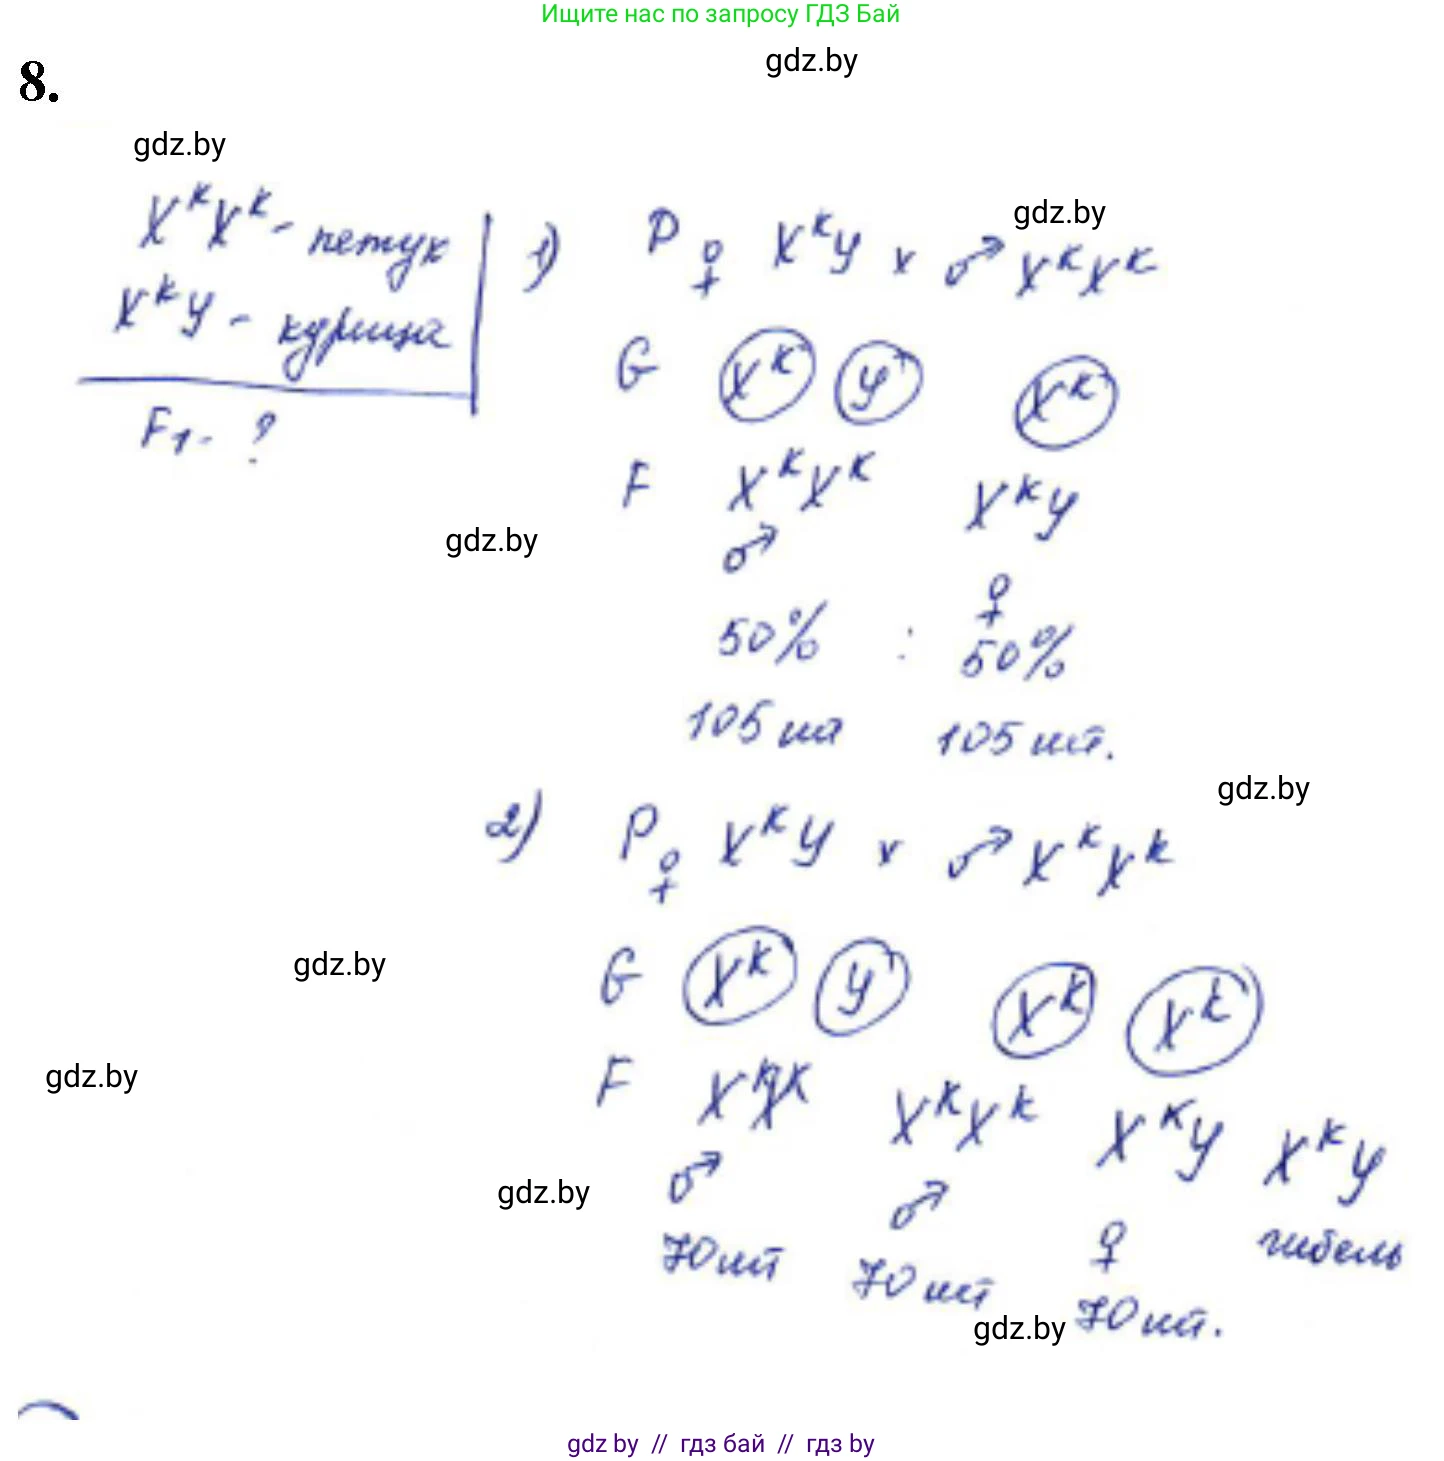 Ищите нас по запросу ГДЗ Бай
gdz.by
8.
gdz.by
gdz.by
XᴷXᵏ - петух
XᴷY - курица
F₁ - ?
1) P ♀ XᴷY x ♂ XᴷXᴷ
G Xᴷ Y Xᴷ
F XᴷXᴷ XᴷY
gdz.by
♂ ♀
50% : 50%
105 шт 105 шт.
gdz.by
2) P ♀ XᴷY x ♂ XᴷXᵏ
gdz.by
G Xᴷ Y Xᴷ Xᵏ
gdz.by
F XᴷXᴷ XᴷXᵏ XᴷY XᵏY
gdz.by
♂ ♂ ♀ гибель
70 шт 70 шт 70 шт.
gdz.by
gdz by // гдз бай // гдз by